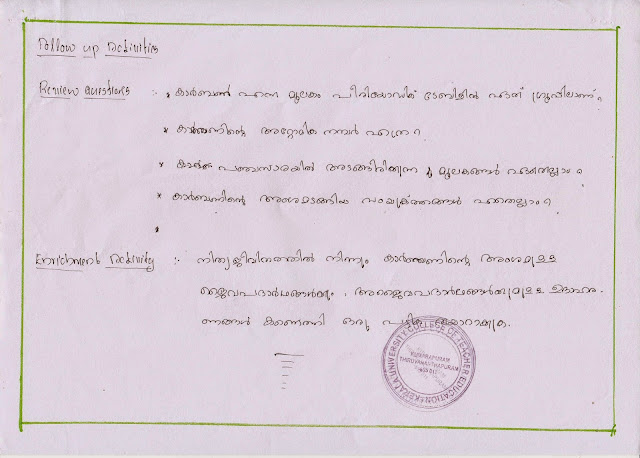 Follow up Activities
Review Questions :- * കാർബൺ എന്ന മൂലകം പീരിയോഡിക് ടേബിളിൽ ഏത് ഗ്രൂപ്പിലാണ്?
* കാർബണിന്റെ അറ്റോമിക നമ്പർ എത്ര?
* പഞ്ചസാരയിൽ അടങ്ങിരിക്കുന്ന മൂലകങ്ങൾ ഏതെല്ലാം?
* കാർബണിന്റെ അംശമടങ്ങിയ സംയുക്തങ്ങൾ ഏതെല്ലാം?
*
Enrichment Activity :- നിത്യജീവിതത്തിൽ നിന്നും കാർബണിന്റെ അംശമുള്ള
ജൈവപദാർഥങ്ങൾക്കും, അജൈവപദാർഥങ്ങൾക്കുമുള്ള ഉദാഹര-
ണങ്ങൾ കണ്ടെത്തി ഒരു പട്ടിക തയ്യാറാക്കുക.
KERALA UNIVERSITY COLLEGE OF TEACHER EDUCATION
KUMARAPURAM
THIRUVANANTHAPURAM